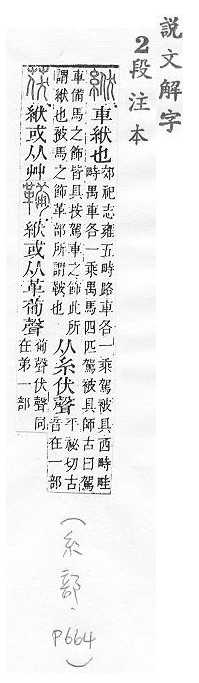 説文解字
2段注本
絥 車絥也 郊祀志雍五畤路車各一乘駕被具西畤畦
畤禺車各一乘禺馬四匹駕被具師古曰駕
車備馬之飾皆具按駕車之飾此所
謂絥也被馬之飾革部所謂鞁也 从糸伏聲 平祕切古
音在一部
茯 絥或从艸 鞴 絥或从革葡聲 葡聲伏聲同
在弟一部
(糸部.P664)